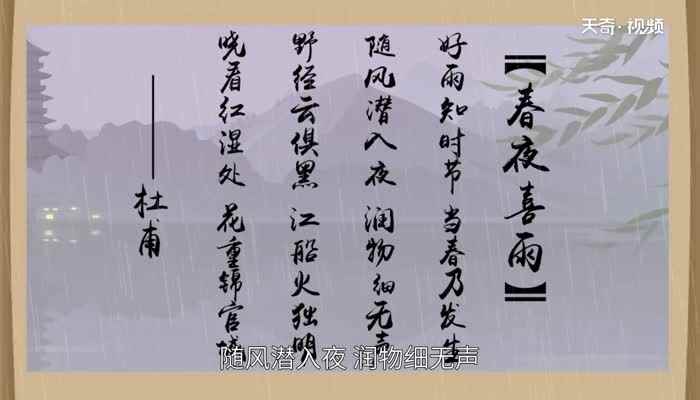 天奇·视频
【春夜喜雨】
好雨知时节 当春乃发生
随风潜入夜 润物细无声
野径云俱黑 江船火独明
晓看红湿处 花重锦官城
——杜甫
随风潜入夜 润物细无声